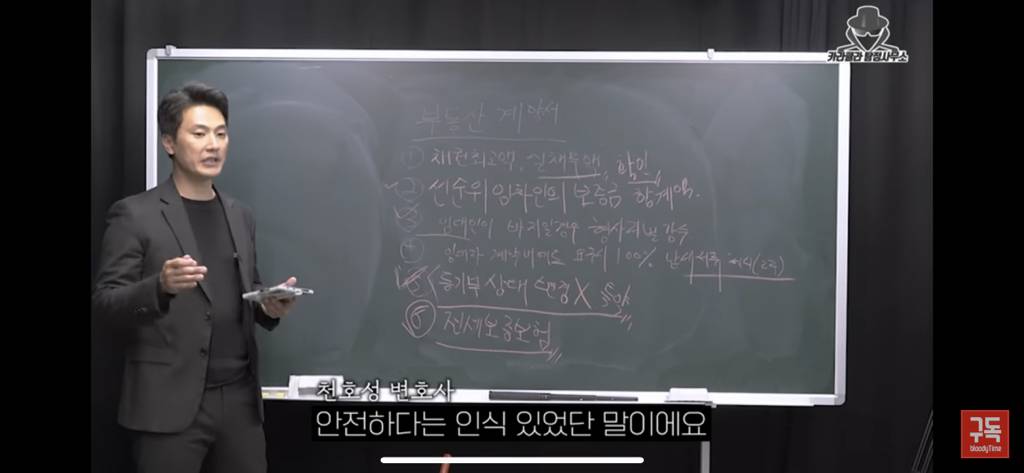 카라큘라 탐정사무소
부동산 계약서
① 채권최고액, 실채무액, 확인
② 선순위 임차인의 보증금 합계액.
③ 임대인이 바지일경우 형사처벌 감수
④ 임차인 100%
⑤ 등기부 상태 변경 X 특약
⑥ 전세보증보험
천호성 변호사
안전하다는 인식 있었단 말이에요
구독
bloodyTime